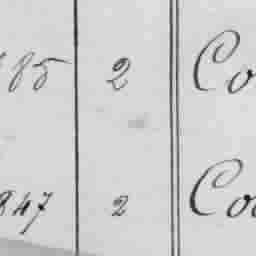 185 2 Co
847 2 Coo